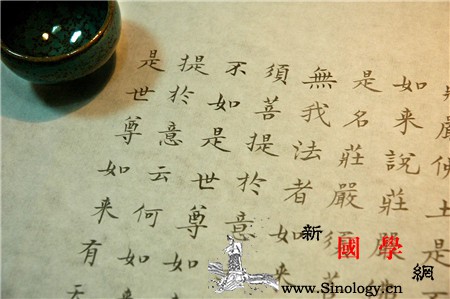 嚴佛土是
如来說莊嚴
是名莊嚴須菩
無我法者如来
須菩提於意
不如是世尊如
提於意云何如
是世尊如来有
新
國學
網
www.Sinology.cn